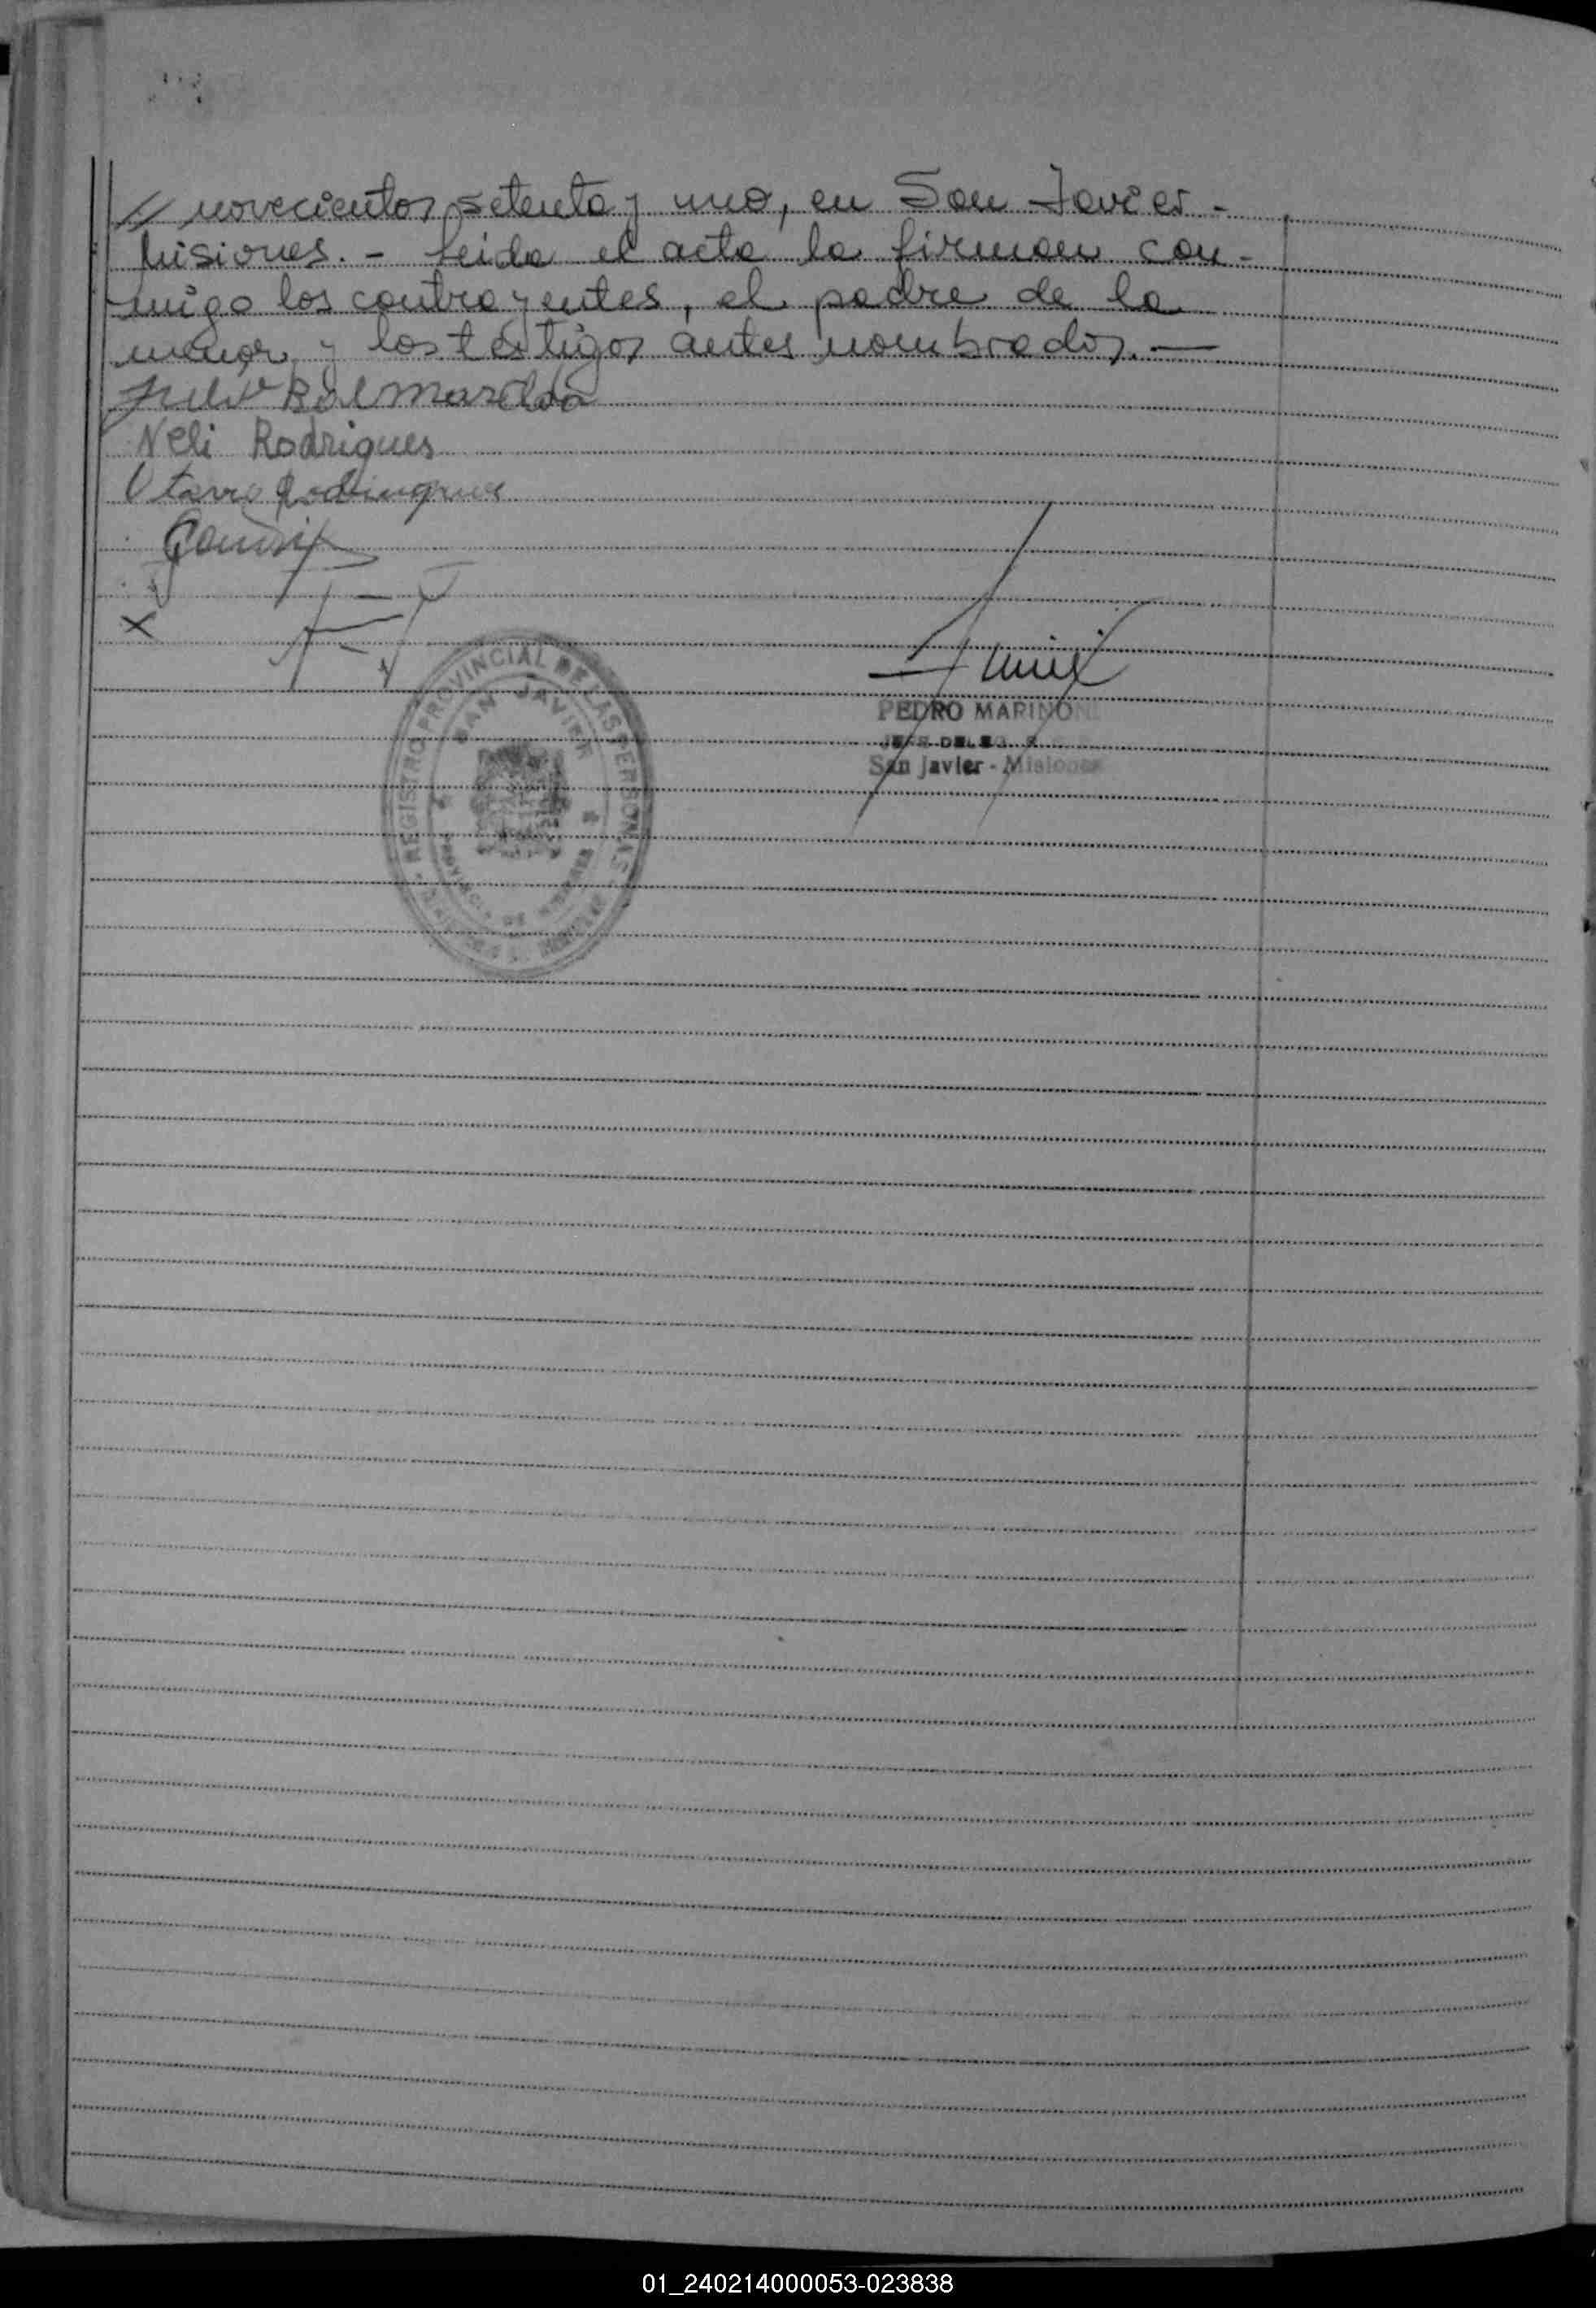 // novecientos setenta y uno, en San Javier -
Misiones. - Leida el acta la firman con-
migo los contrayentes, el padre de la
menor y los testigos antes nombrados. —
Neli Rodrigues
X
REGISTRO PROVINCIAL DE LAS PERSONAS
SAN JAVIER
PROVINCIA DE MISIONES
PEDRO MARINONI
JEFE DELEG. R.
San Javier - Misiones
01_240214000053-023838